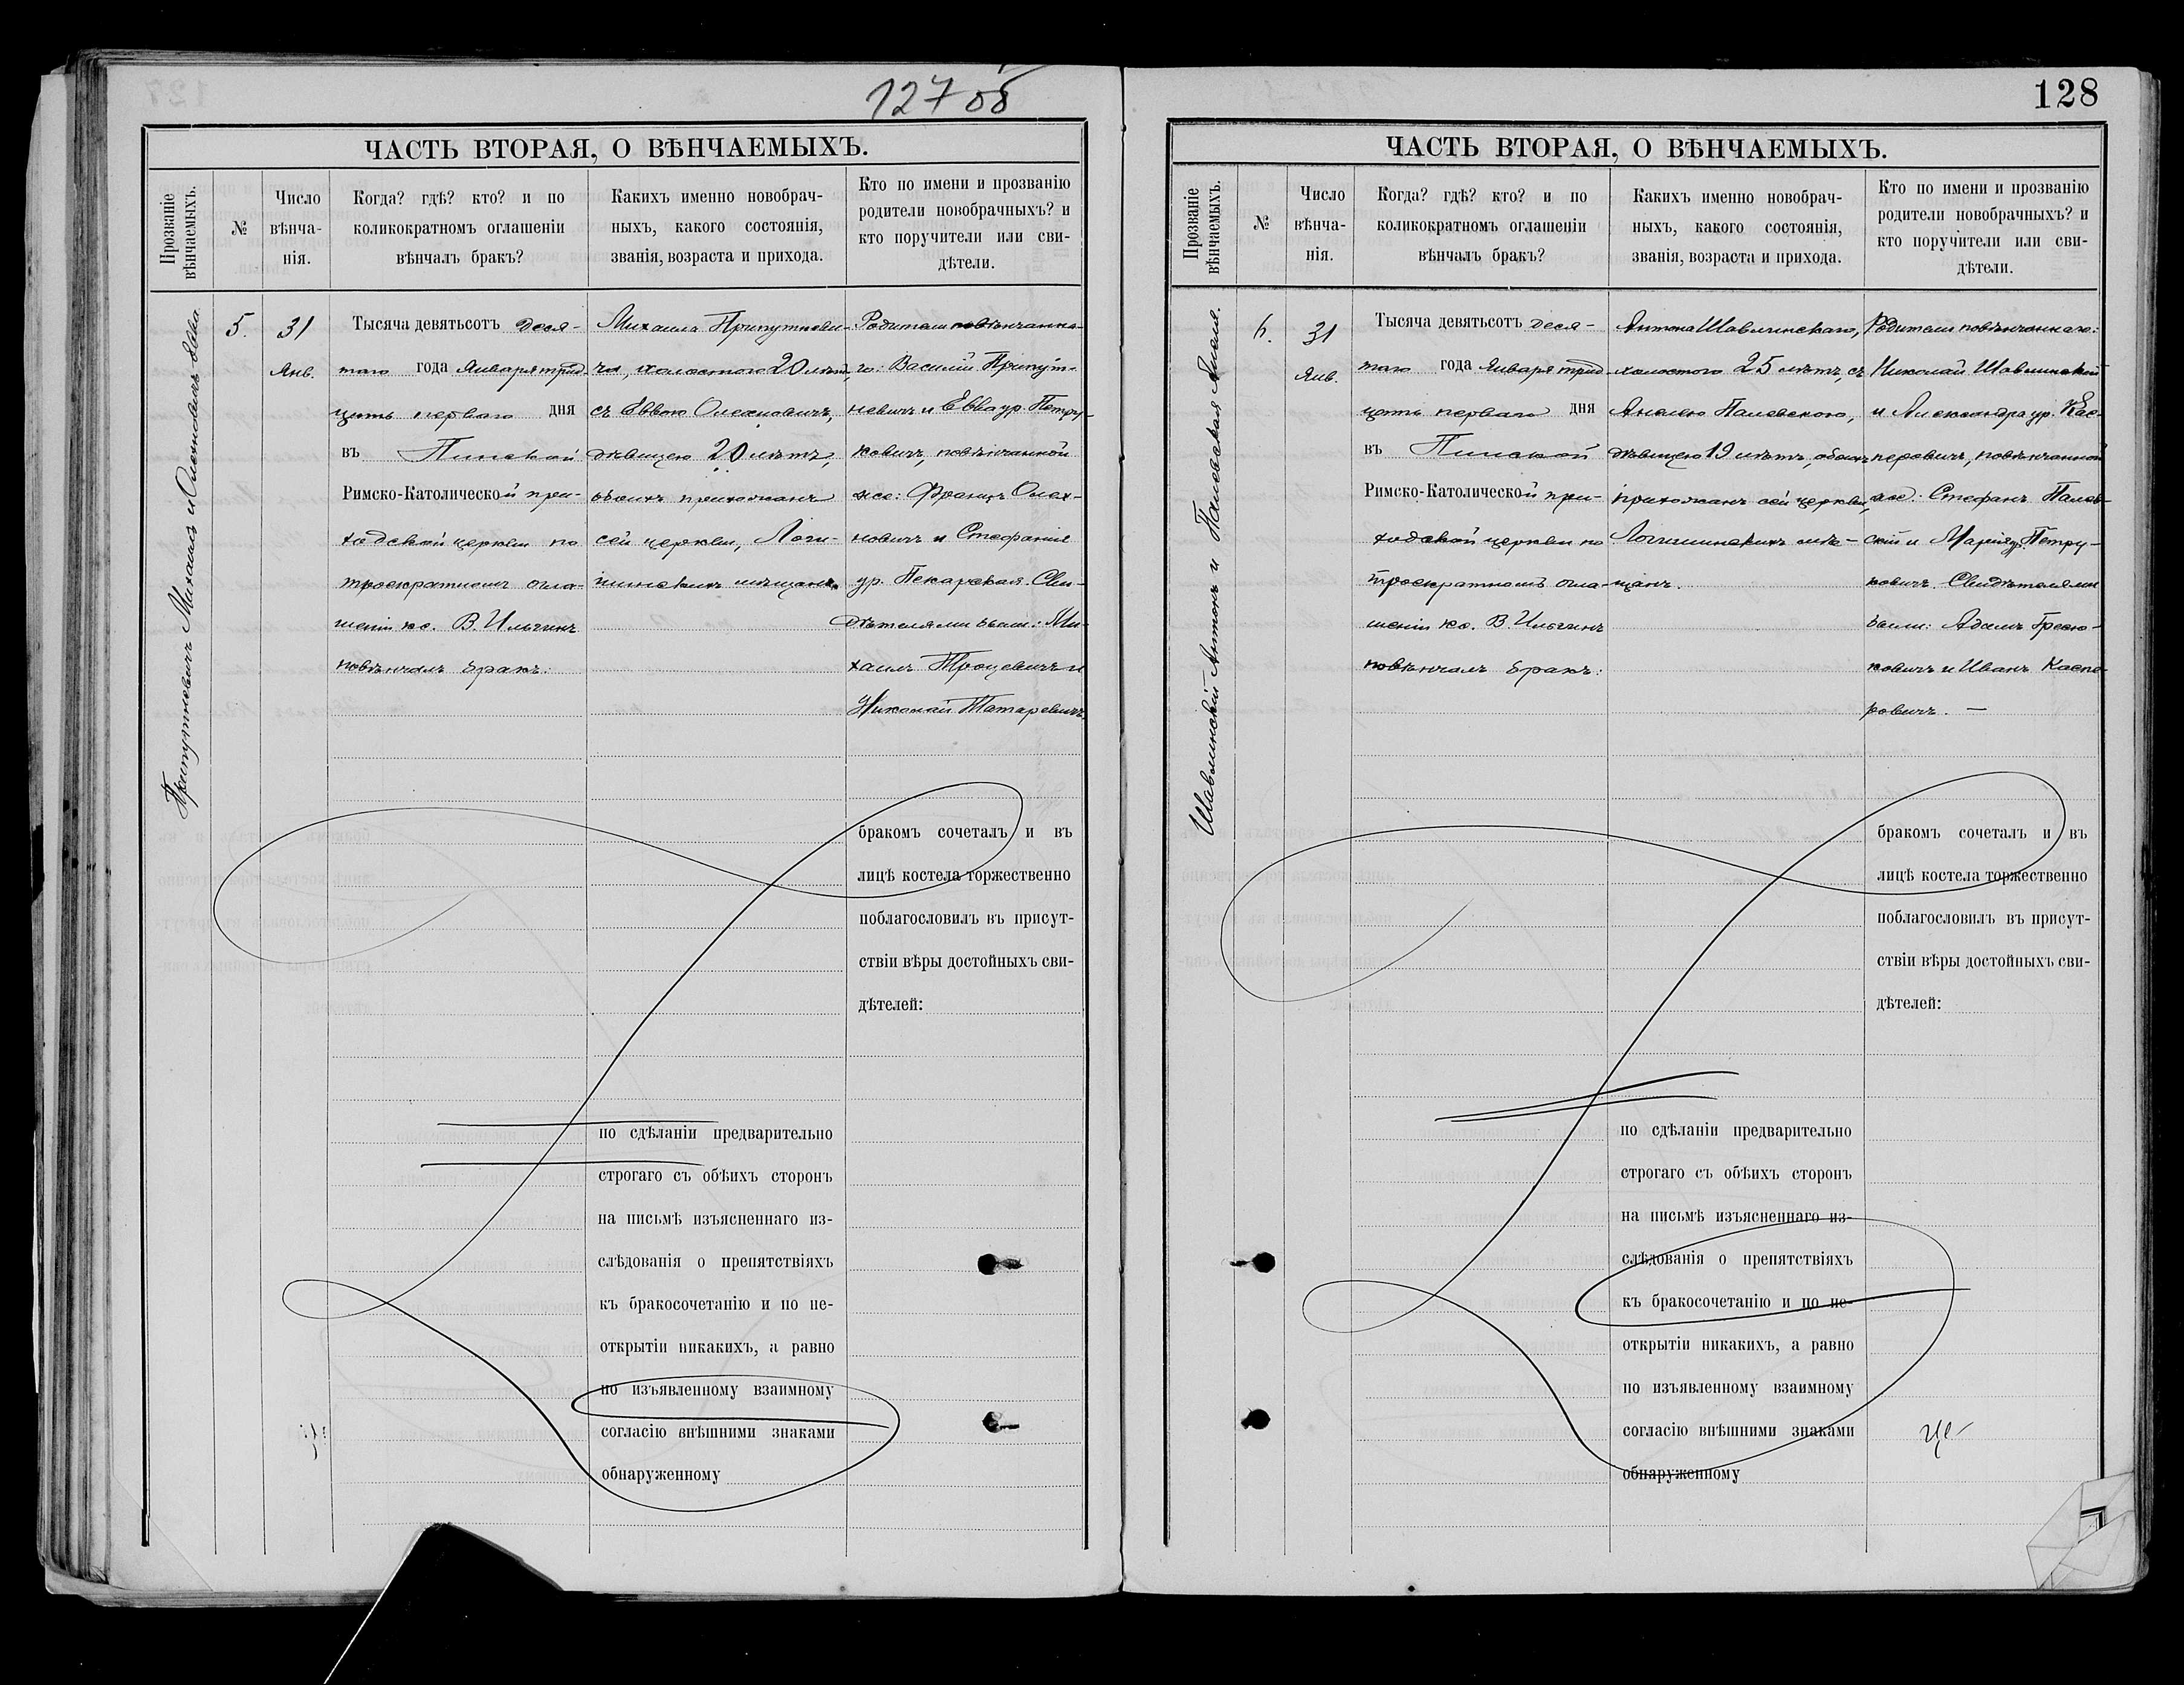 127 об
ЧАСТЬ ВТОРАЯ, О ВѢНЧАЕМЫХЪ.
Прозваніе
вѣнчаемыхъ.
№
Число
вѣнча-
нія.
Когда? гдѣ? кто? и по
коликократномъ оглашеніи
вѣнчалъ бракъ?
Какихъ именно новобрач-
ныхъ, какого состоянія,
званія, возраста и прихода.
Кто по имени и прозванію
родители новобрачныхъ? и
кто поручители или сви-
дѣтели.
Припутневичъ Михаилъ и Олехновичъ Евва.
5.
31
Янв.
Тысяча девятьсотъ деся-
таго года Января трид-
цать перваго дня
въ Пинской
Римско-Католической при-
ходской церкви по
троекратномъ огла-
шеніи кс. В. Ильгинъ
повѣнчалъ бракъ:
Михаила Припутневи-
ча, холостого 20 лѣтъ,
съ Еввою Олехновичъ,
дѣвицею 20 лѣтъ,
обоихъ прихожанъ
сей церкви, Логи-
шинскихъ мѣщанъ.
Родители повѣнчанна-
го: Василій Припут-
невичъ и Евва ур. Петру-
ковичъ, повѣнчанной
же: Францъ Олех-
новичъ и Стефанія
ур. Пекарская. Сви-
дѣтелями были: Ми-
хаилъ Троцевичъ и
Николай Татаревичъ
бракомъ сочеталъ и въ
лицѣ костела торжественно
поблагословилъ въ присут-
ствіи вѣры достойныхъ сви-
дѣтелей:
по сдѣланіи предварительно
строгаго съ обѣихъ сторонъ
на письмѣ изъясненнаго из-
слѣдованія о препятствіяхъ
къ бракосочетанію и по не-
открытіи никакихъ, а равно
по изъявленному взаимному
согласію внѣшними знаками
обнаруженному
128
ЧАСТЬ ВТОРАЯ, О ВѢНЧАЕМЫХЪ.
Прозваніе
вѣнчаемыхъ.
№
Число
вѣнча-
нія.
Когда? гдѣ? кто? и по
коликократномъ оглашеніи
вѣнчалъ бракъ?
Какихъ именно новобрач-
ныхъ, какого состоянія,
званія, возраста и прихода.
Кто по имени и прозванію
родители новобрачныхъ? и
кто поручители или сви-
дѣтели.
Шавлинскій Антонъ и Палевская Анеля.
6.
31
Янв.
Тысяча девятьсотъ деся-
таго года Января трид-
цать перваго дня
въ Пинской
Римско-Католической при-
ходской церкви по
троекратномъ огла-
шеніи кс. В. Ильгинъ
повѣнчалъ бракъ:
Антона Шавлинскаго,
холостого 25 лѣтъ, съ
Анелею Палевскою,
дѣвицею 19 лѣтъ, обоихъ
прихожанъ сей церкви,
Логишинскихъ мѣ-
щанъ.
Родители повѣнчаннаго:
Николай Шавлинскій
и Александра ур. Кас-
перовичъ, повѣнчанной
же: Стефанъ Палев-
скій и Марія ур. Петру-
ковичъ. Свидѣтелями
были: Адамъ Греко-
ковичъ и Иванъ Каспе-
ровичъ. —
бракомъ сочеталъ и въ
лицѣ костела торжественно
поблагословилъ въ присут-
ствіи вѣры достойныхъ сви-
дѣтелей:
по сдѣланіи предварительно
строгаго съ обѣихъ сторонъ
на письмѣ изъясненнаго из-
слѣдованія о препятствіяхъ
къ бракосочетанію и по не-
открытіи никакихъ, а равно
по изъявленному взаимному
согласію внѣшними знаками
обнаруженному